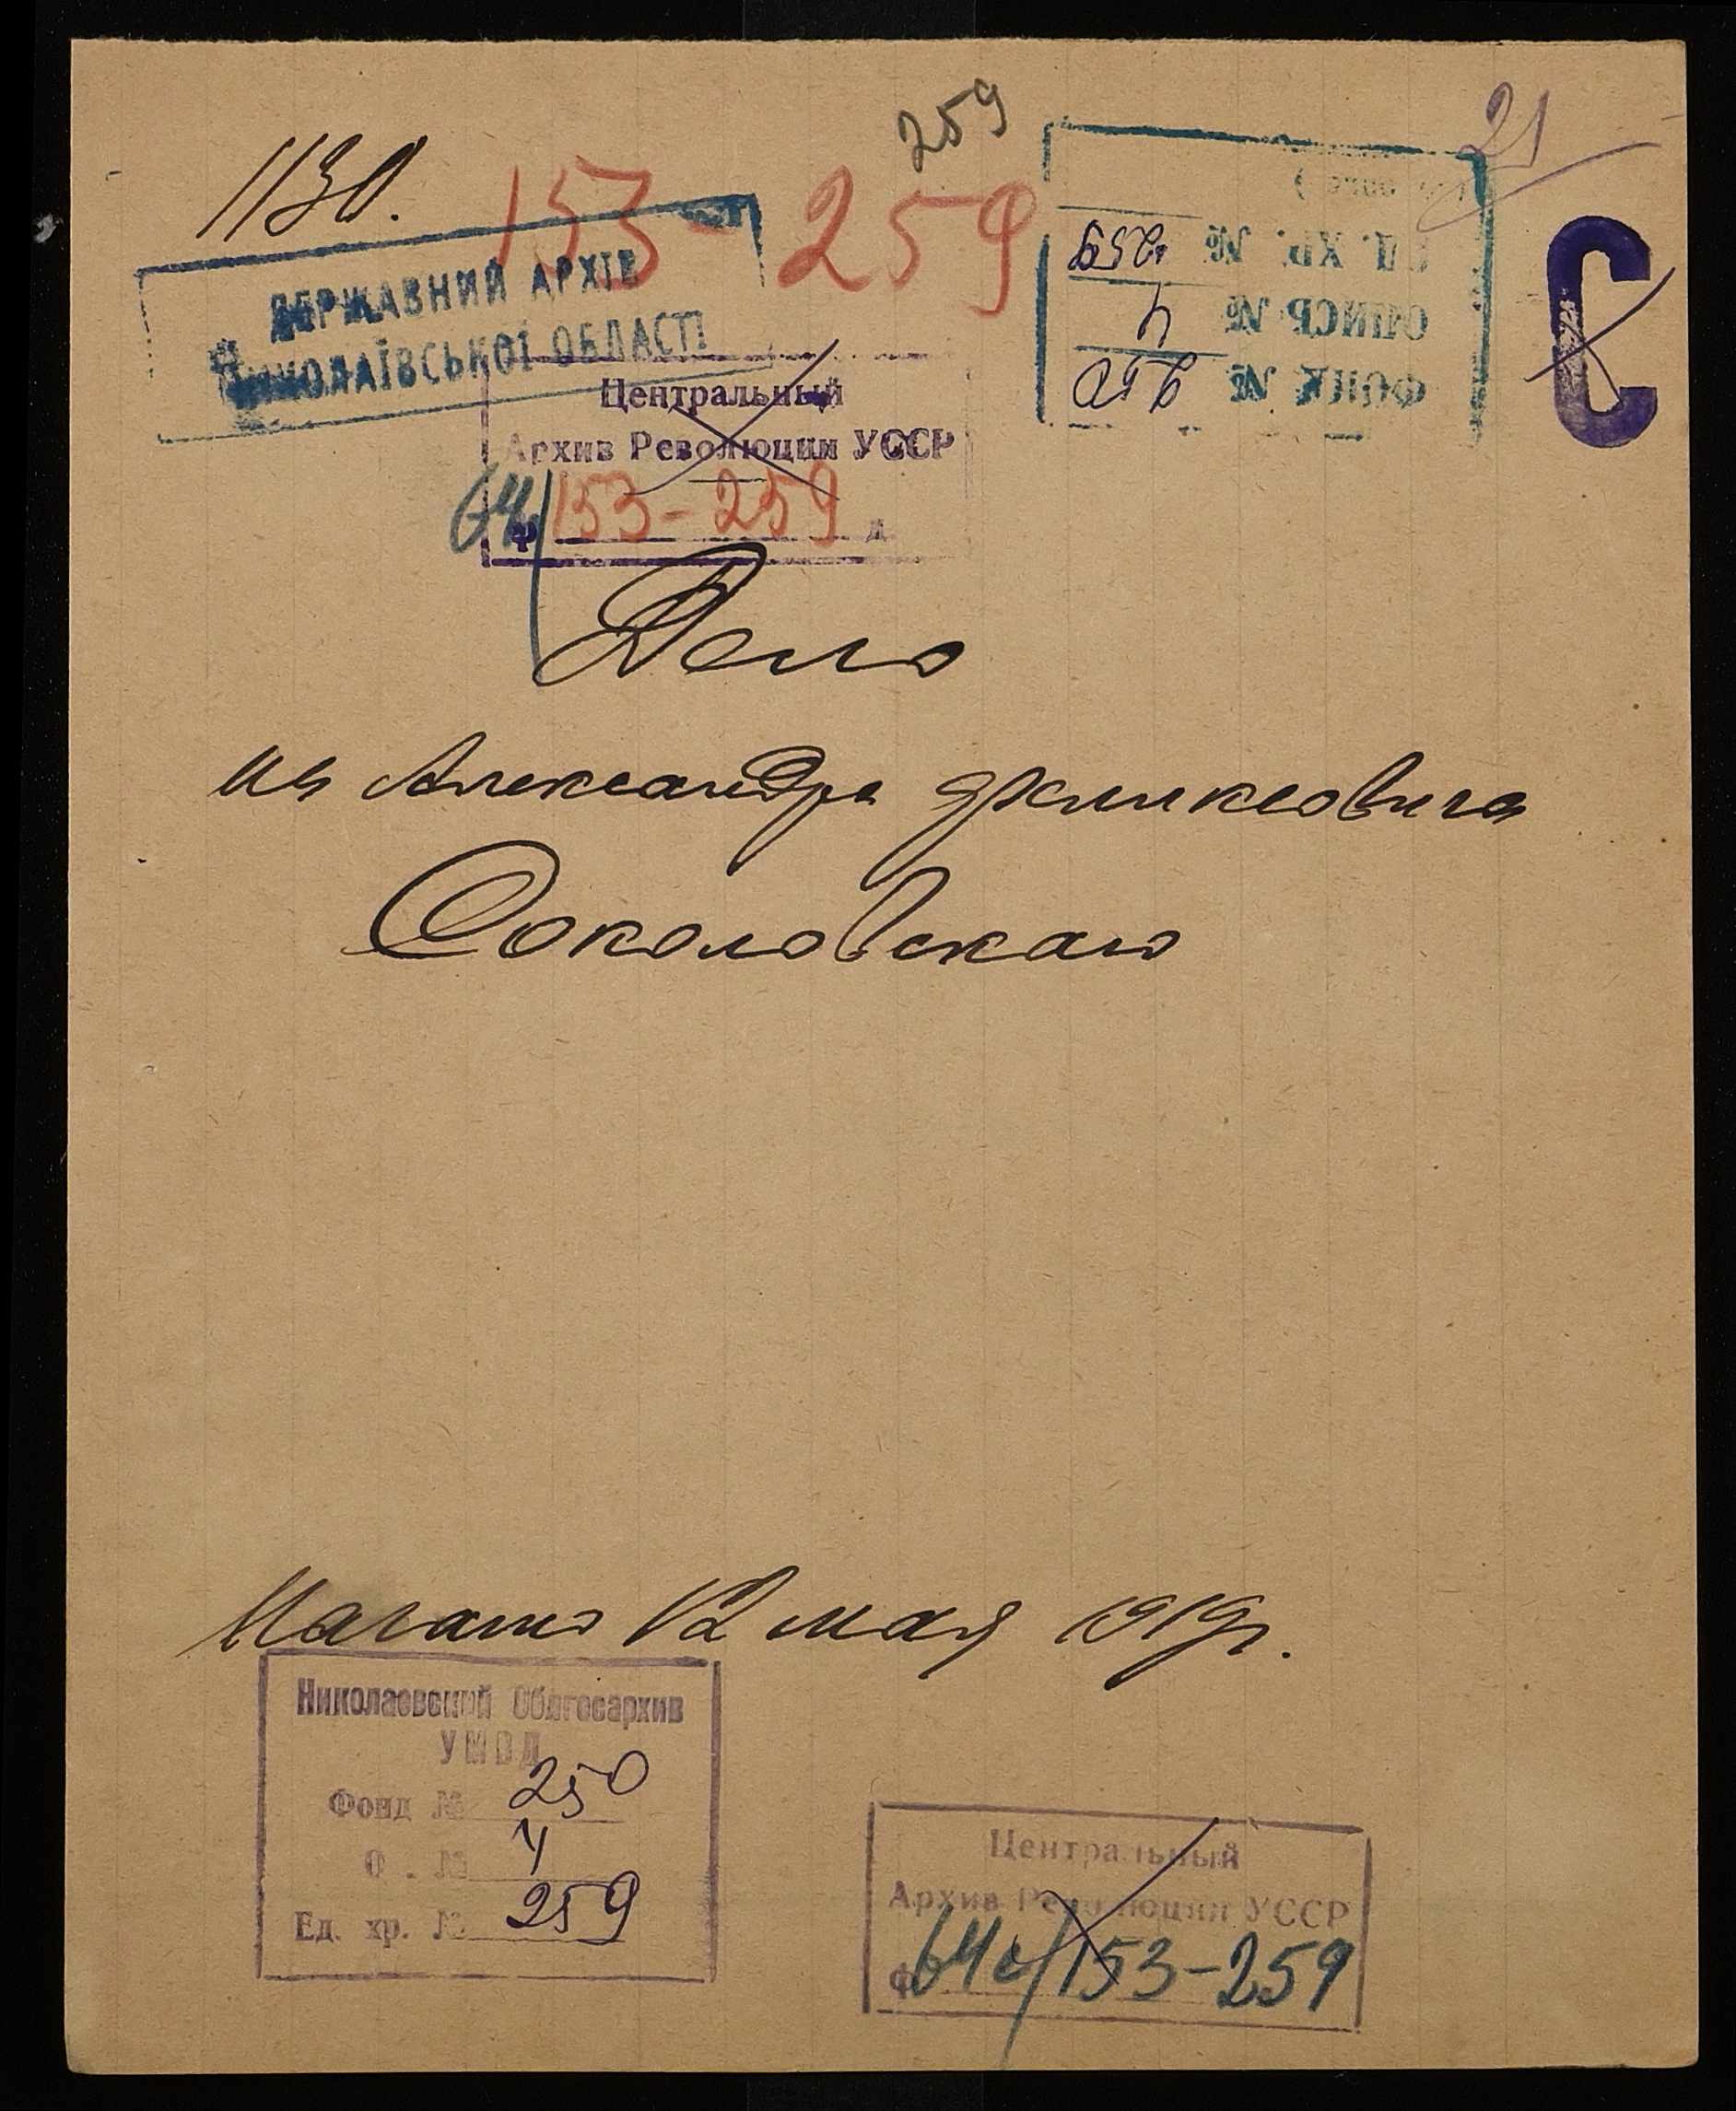 259
21
1130.
153-259
ДЕРЖАВНИЙ АРХІВ
МИКОЛАЇВСЬКОЇ ОБЛАСТІ
ЕД. ХР. № 259
ОПИСЬ № 4
ФОНД № 250
С
Центральный
Архив Революции УССР
64/
Ф 153-259 д.
Дело
Александра Феликсовича
Соколовскаго
Начато 12 мая 1919г.
Николаевский Облгосархив
УМВД
Фонд № 250
О . № 4
Ед. хр. № 259
Центральный
Архив Революции УССР
Ф 64с/153-259